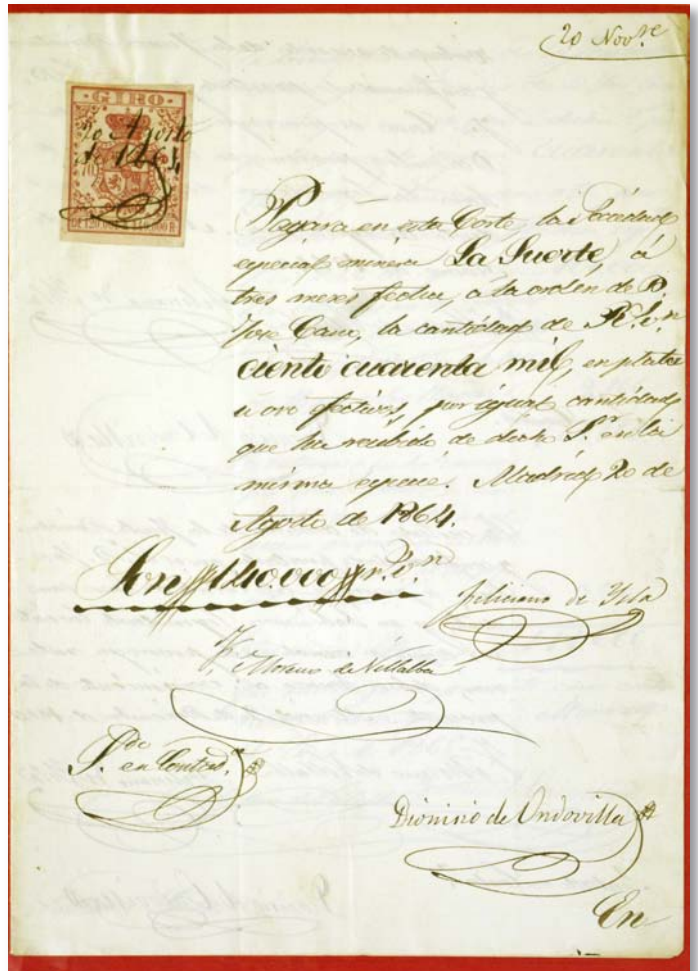 20 Nov.re
GIRO
20 Agosto
de 1864
Pagará en esta Corte, la Sociedad
especial minera La Suerte, á
tres meses fecha, a la orden de D.
Jose Cano, la cantidad de R.s v.n
ciento cuarenta mil, en plata
u oro efectivos, por igual cantidad
que ha recibido de dicho S.r en la
misma especie. Madrid 20 de
Agosto de 1864.
Son 140.000 r.s v.n
Feliciano de Ysla
F. Moreno de Villalba
P.de en Contad.a
Dionisio de Ondovilla
En